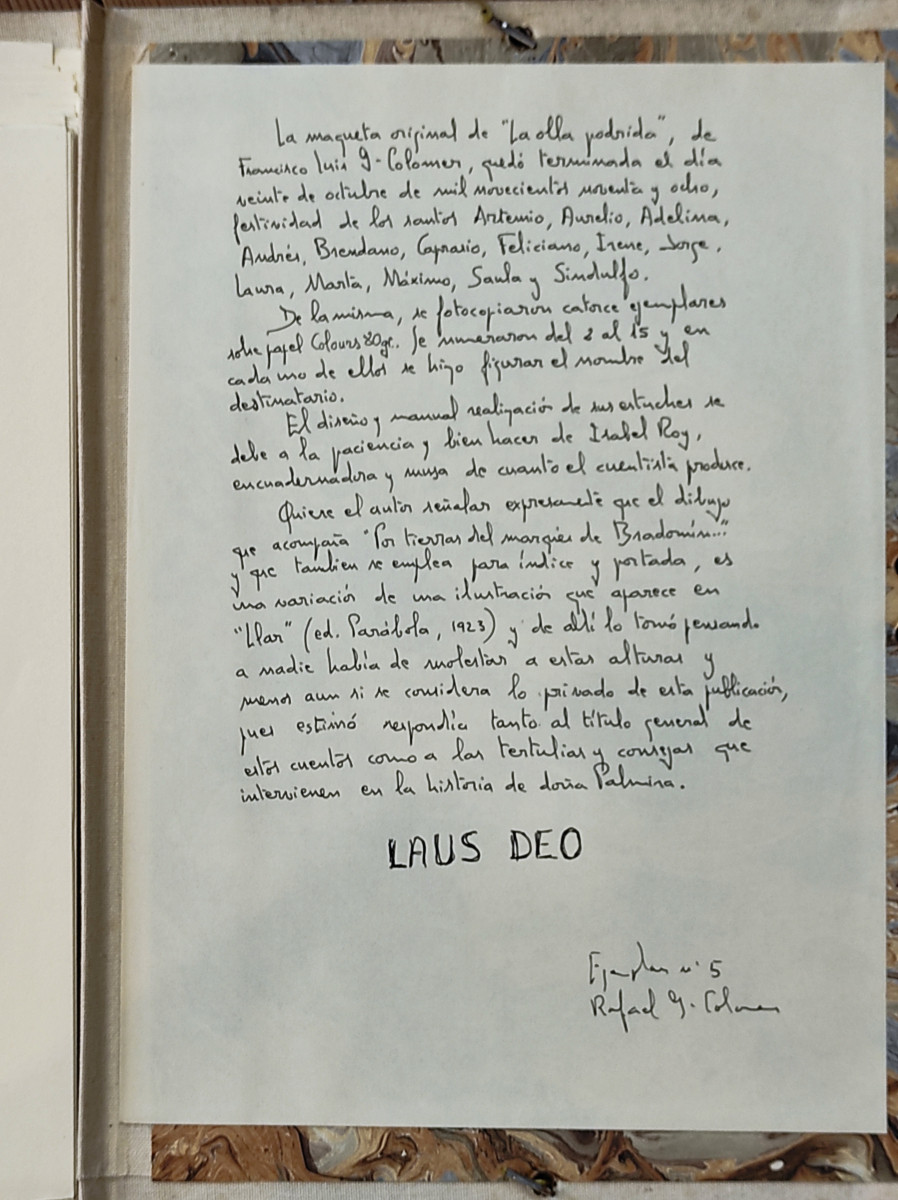 La maqueta original de "La olla podrida", de
Francisco Luis G-Colomer, quedó terminada el día
veinte de octubre de mil novecientos noventa y ocho,
festividad de los santos Artemio, Aurelio, Adelina,
Andrés, Brendano, Caprasio, Feliciano, Irene, Jorge,
Laura, Marta, Máximo, Saula y Sindulfo.
De la misma, se fotocopiaron catorce ejemplares
sobre papel Colours 80gr. Se numeraron del 2 al 15 y en
cada uno de ellos se hizo figurar el nombre del
destinatario.
El diseño y manual realización de sus estuches se
debe a la paciencia y bien hacer de Isabel Roy,
encuadernadora y musa de cuanto el cuentista produce.
Quiere el autor señalar expresamente que el dibujo
que acompaña "Por tierras del marqués de Bradomín..."
y que tambien se emplea para índice y portada, es
una variación de una ilustración que aparece en
"Llar" (ed. Parábola, 1923) y de allí lo tomó pensando
a nadie había de molestar a estas alturas y
menos aun si se considera lo privado de esta publicación,
pues estimó respondía tanto al título general de
estos cuentos como a las tertulias y consejas que
intervienen en la historia de doña Palmira.
LAUS DEO
Ejemplar nº 5
Rafael G-Colomer